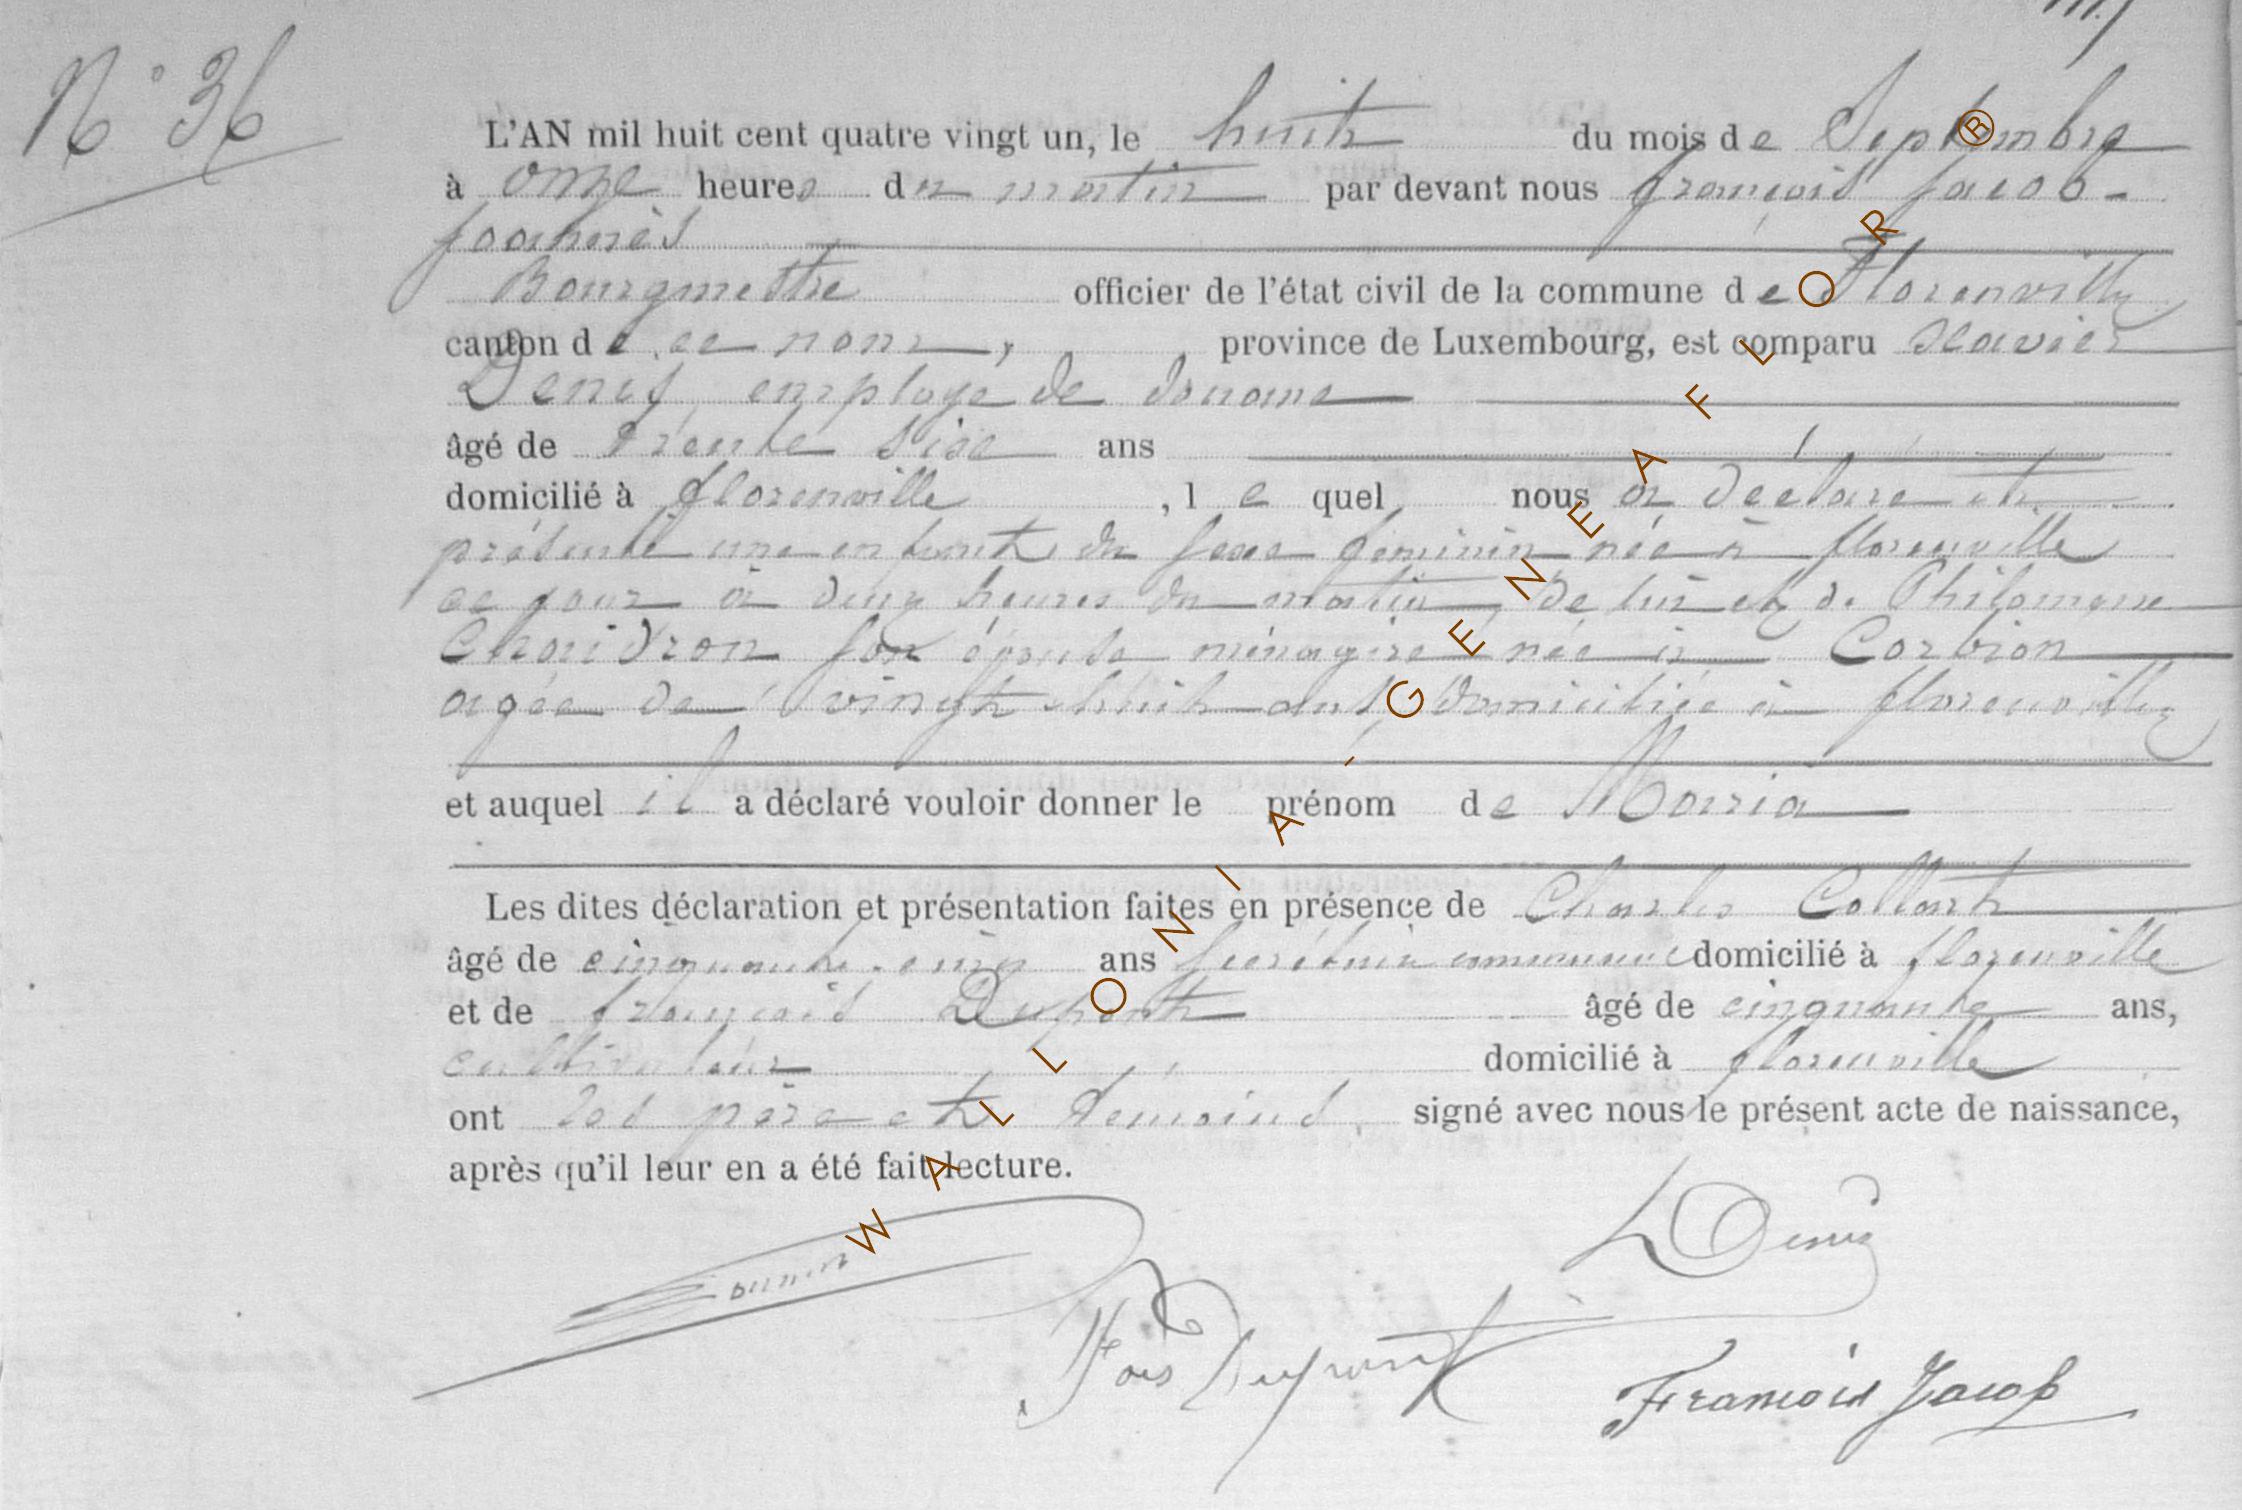 N° 36
L'AN mil huit cent quatre vingt un, le huit du mois de Septembre
à onze heures du matin par devant nous françois Jacob-
Bourgmestre officier de l'état civil de la commune de Florenville
canton de ce nom, province de Luxembourg, est comparu Xavier
Denef, employé de douane
âgé de trente six ans
domicilié à florenville, lequel nous a déclaré et
présenté une enfant du sexe feminin née à florenville
ce jour à deux heures du matin de lui et de Philomène
son épouse ménagère née à Corbion
agée de vingt huit ans, domiciliée à florenville
et auquel il a déclaré vouloir donner le prénom de Maria
Les dites déclaration et présentation faites en présence de Charles Collart
âgé de cinquante cinq ans secrétaire communal domicilié à florenville
et de françois Dupont âgé de cinquante ans,
cultivateur domicilié à florenville
ont les père et témoins signé avec nous le présent acte de naissance,
après qu'il leur en a été fait lecture.
Fois Dupont
François Jacob
WALLONIA-GENEAFLOR®